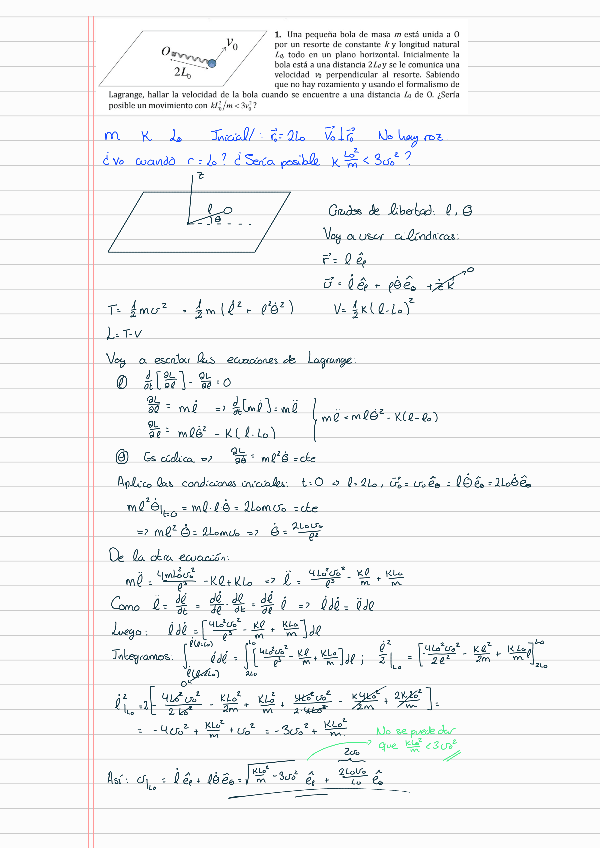 O
v₀
2L₀
1. Una pequeña bola de masa m está unida a O
por un resorte de constante k y longitud natural
L₀, todo en un plano horizontal. Inicialmente la
bola está a una distancia 2L₀ y se le comunica una
velocidad v₀ perpendicular al resorte. Sabiendo
que no hay rozamiento y usando el formalismo de
Lagrange, hallar la velocidad de la bola cuando se encuentre a una distancia L₀ de O. ¿Sería
posible un movimiento con kL₀²/m < 3v₀²?
m K L₀ Inicial/: r₀ = 2L₀ v₀⊥r₀ No hay roz
¿v₀ cuando r = L₀? ¿Sería posible K L₀²/m < 3v₀²?
z
l
θ
Grados de libertad: l, θ
Voy a usar cilíndricas:
r = l êρ
v = l̇ êρ + ρθ̇ êθ + ż k → 0
T = 1/2 mv² = 1/2 m (l̇² + l²θ̇²) V = 1/2 K (l - L₀)²
L = T - V
Voy a escribir las ecuaciones de Lagrange:
(l) d/dt [∂L/∂l̇] - ∂L/∂l = 0
∂L/∂l̇ = ml̇ => d/dt [ml̇] = ml̈
∂L/∂l = mlθ̇² - K(l - L₀)
ml̈ = mlθ̇² - K(l - l₀)
(θ) Es cíclica => ∂L/∂θ̇ = ml²θ̇ = cte
Aplico las condiciones iniciales: t=0 => l = 2L₀, v₀ = v₀ êθ = lθ̇ êθ = 2L₀θ̇ êθ
ml²θ̇|t=0 = ml·lθ̇ = 2L₀mv₀ = cte
=> ml²θ̇ = 2L₀mv₀ => θ̇ = 2L₀v₀/l²
De la otra ecuación:
ml̈ = 4mL₀²v₀²/l³ - Kl + KL₀ => l̈ = 4L₀²v₀²/l³ - Kl/m + KL₀/m
Como l̈ = dl̇/dt = dl̇/dl · dl/dt = dl̇/dl l̇ => l̇dl̇ = l̈dl
Luego: l̇dl̇ = [4L₀²v₀²/l³ - Kl/m + KL₀/m] dl
Integramos: ∫ l̇dl̇ = ∫ [4L₀²v₀²/l³ - Kl/m + KL₀/m] dl ; l̇²/2|L₀ = [-4L₀²v₀²/2l² - Kl²/2m + KL₀/m l]
l̇²|L₀ = 2[-4L₀²v₀²/2L₀² - KL₀²/2m + KL₀²/m + 4L₀²v₀²/2·4L₀² - K4L₀²/2m + 2KL₀²/m] =
= -4v₀² + KL₀²/m + v₀² = -3v₀² + KL₀²/m
No se puede dar
que KL₀²/m < 3v₀²
2v₀
Así: v|L₀ = l̇ êρ + lθ̇ êθ = √(KL₀²/m - 3v₀²) êρ + 2L₀v₀/L₀ êθ